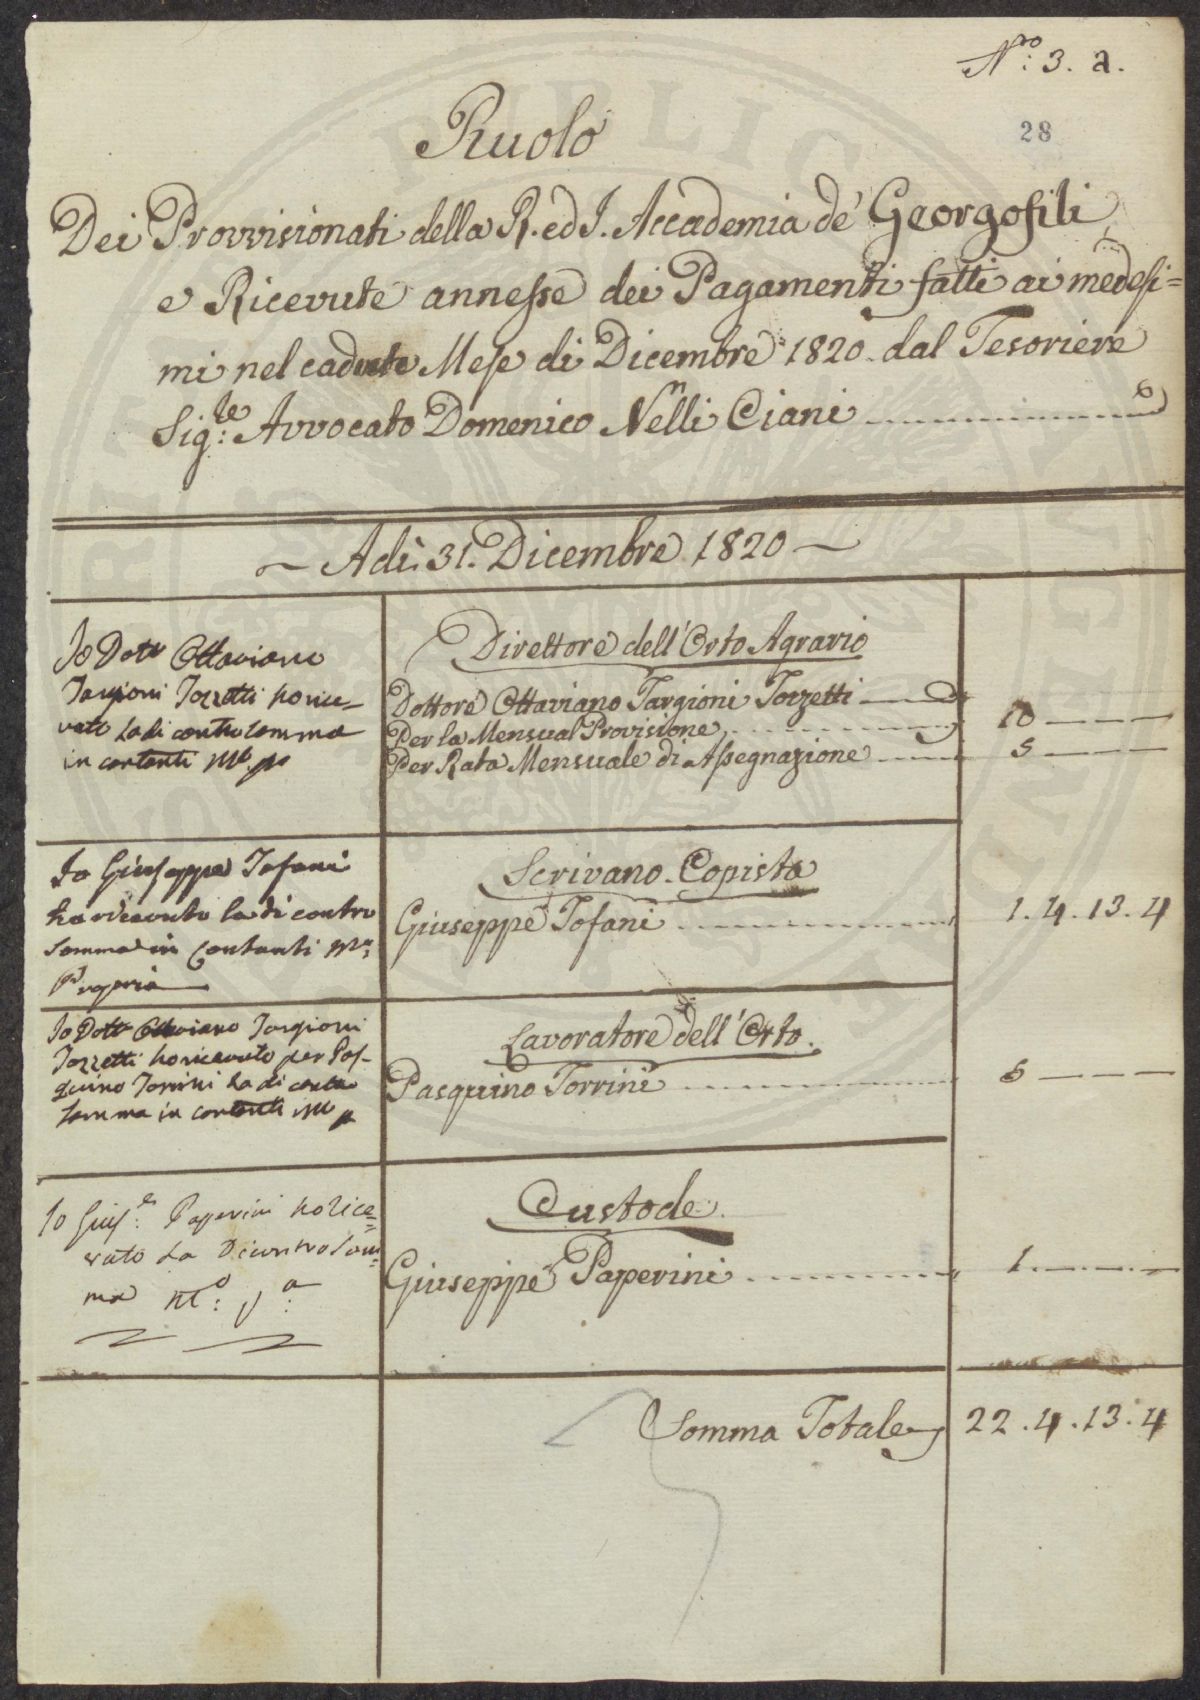 N.ro 3. a.
28
Ruolo
Dei Provvisionati della R. ed I. Accademia de' Georgofili
e Ricevute annesse dei Pagamenti fatti ai medesi=
mi nel cadute Mese di Dicembre 1820. dal Tesoriere
Sig.re Avvocato Domenico Nelli Ciani
Adi. 31. Dicembre 1820
Io Dott Ottaviano
Targioni Tozzetti ho rice=
vuto la di contro somma
in contanti
Direttore dell'Orto Agrario
Dottore Ottaviano Targioni Tozzetti
Per la Mensual Provisione 10
Per Rata Mensuale di Assegnazione 5
Io Giuseppe Tofani
ho ricevuto la di contro
somma in Contanti
Propria
Scrivano Copista
Giuseppe Tofani 1. 4. 13. 4
Io Dott Ottaviano Targioni
Tozzetti ho ricevuto per Pas=
quino Torrini la di contro
somma in contanti
Lavoratore dell'Orto.
Pasquino Torrini 5
Io Gius.e Paperini ho rice=
vuto La Dicontro Som=
ma M.o p.a
Custode
Giuseppe Paperini 1
Somma Totale 22. 4. 13. 4